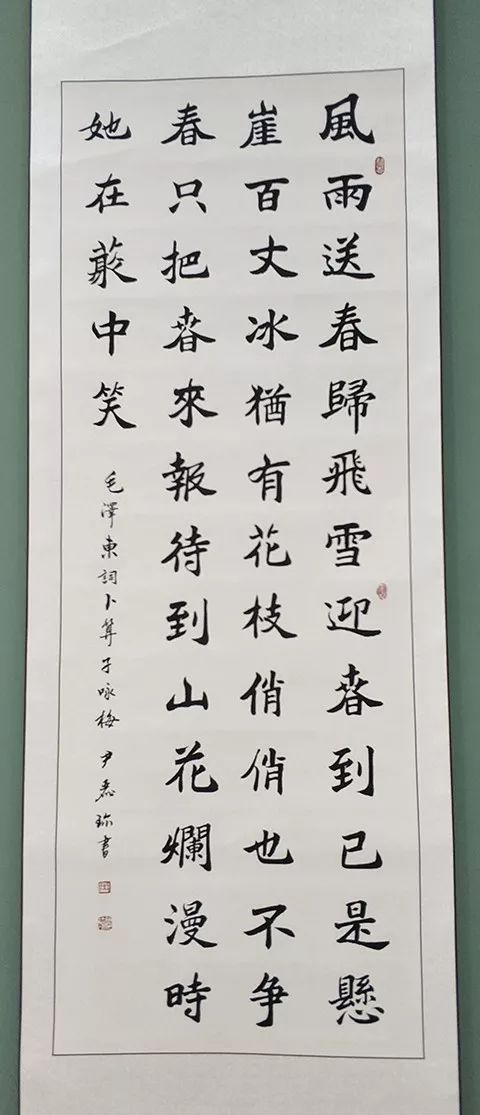 風雨送春歸飛雪迎春到已是懸
崖百丈冰猶有花枝俏俏也不争
春只把春來報待到山花爛漫時
她在叢中笑
毛澤東詞卜筭子咏梅 尹 書